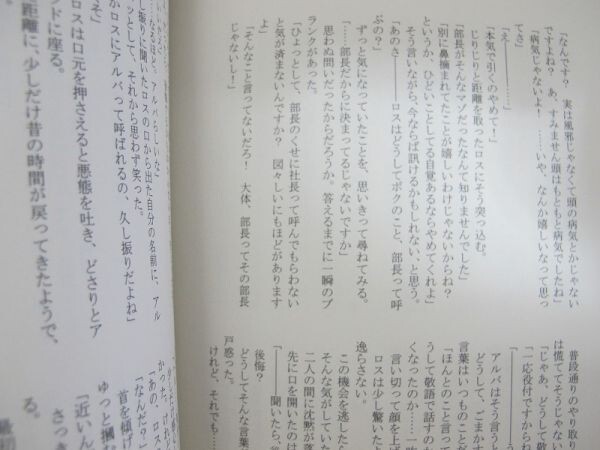 「なんです? 実は風邪じゃなくて頭の病気とかじゃない
ですよね? あ、すみません頭はもともと病気でしたね」
「病気じゃないよ! ……いや、なんか嬉しいなって思っ
てさ」
「え――……」
「本気で引くのやめて!」
じりじりと距離を取ったロスにそう突っ込む。
「部長がそんなマゾだったなんて知りませんでした」
「別に鼻摘まれてたことが嬉しいわけじゃないからね?
というか、ひどいことしてる自覚あるならやめてくれよ」
そう言いながら、今ならば訊けるかもしれない、と思う。
「あのさ――ロスはどうしてボクのこと、部長って呼
ぶの?」
ずっと気になっていたことを、思いきって尋ねてみる。
「……部長だからに決まってるじゃないですか」
思わぬ問いだったからだろうか。答えるまでに一瞬のブ
ランクがあった。
「ひょっとして、部長のくせに社長って呼んでもらわない
と気が済まないんですか? 図々しいにもほどがあります
よ」
「そんなこと言ってないだろ! 大体、部長ってその部長
じゃないし!」
普段通りのやり取り
は慌ててそうじゃな
「じゃあ、どうして敬
「一応役付ですからね
「――――」
アルバはそう言うと
どうして、ごまかす
言葉はいつものことが
「ほんとのこと言って
うして敬語で話すのか
くなったのか……一昨
言い切って顔を上げ
ロスは少し驚いたよ
逸らさない。
この機会を逃したら
そんな気がしていた
二人の間に沈黙が落
先に口を開いたのは
「――聞いたら、後
後悔?
どうしてそんな言葉
戸惑った。
けれど、それでも…
アルバらしいな」
し振りに聞いたロスの口から出た自分の名前に、アル
ッとして、それから思わず笑った。
かロスにアルバって呼ばれるの、久し振りだよね」
そ」
ロスは口元を押さえると悪態を吐き、どさりとア
ッドに座る。
距離に、少しだけ昔の時間が戻ってきたようで、
かった。けれ
「あの、ロス
「なんだ?」
首を傾げ
ゆっと掴
「近いん
さっき
る。